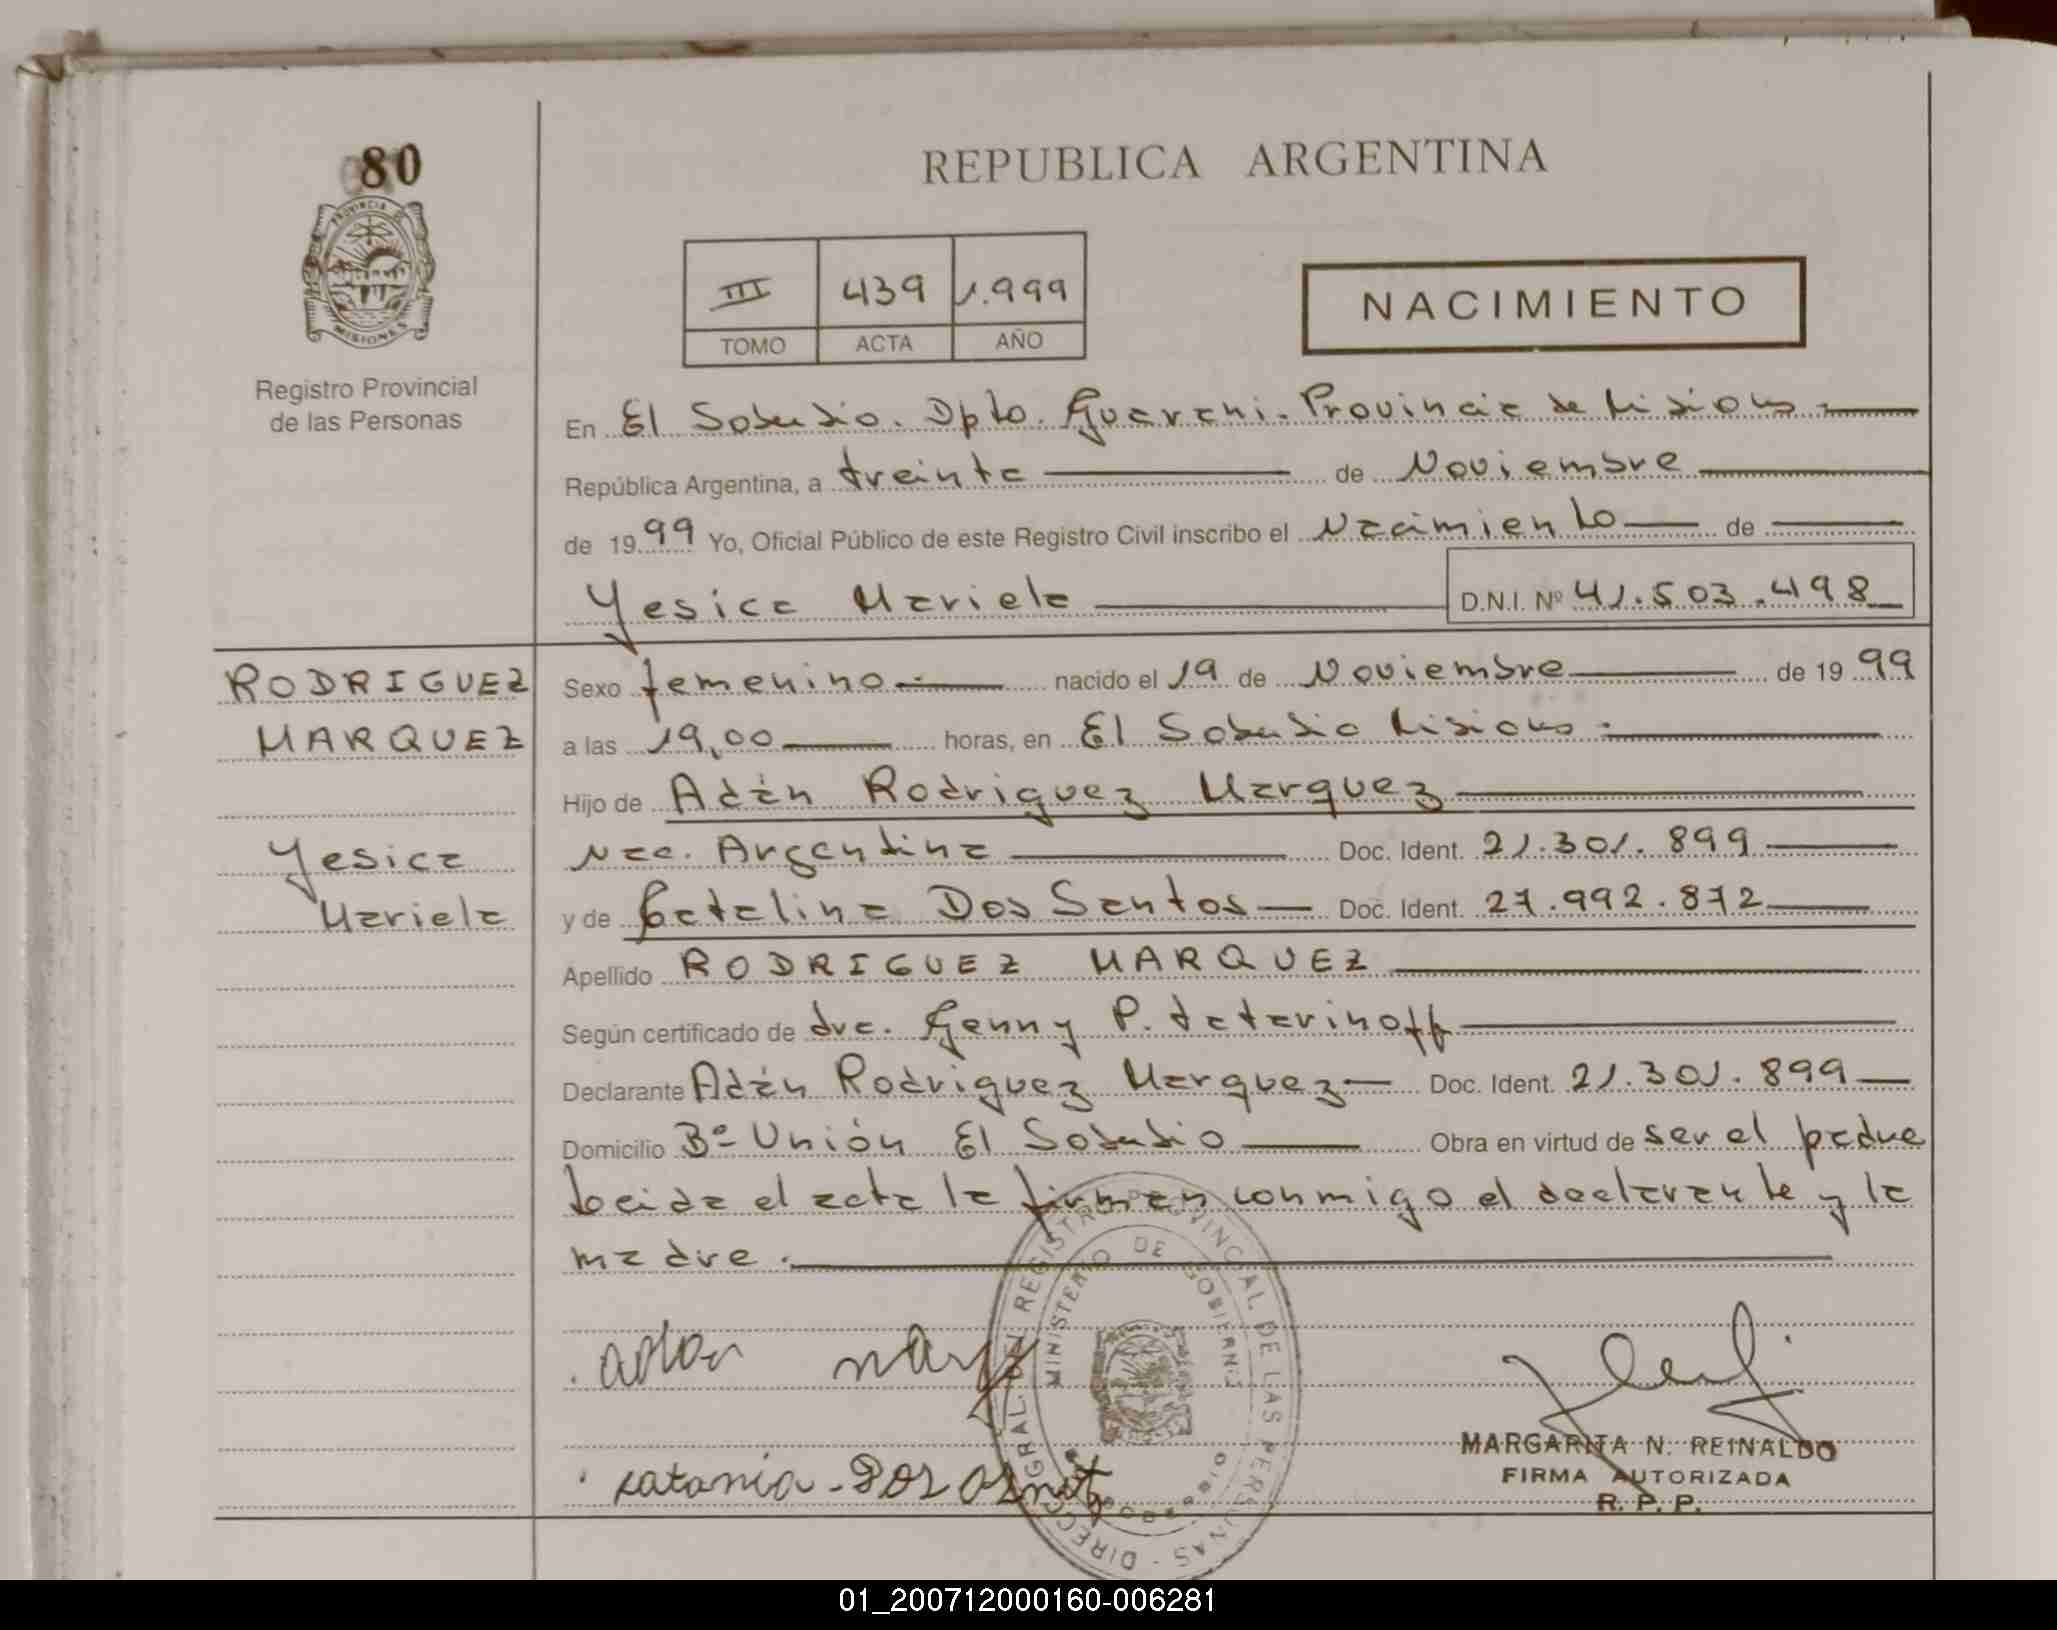 80
PROVINCIA DE
MISIONES
Registro Provincial
de las Personas
REPUBLICA ARGENTINA
III 439 1.999
TOMO ACTA AÑO
NACIMIENTO
En El Soberbio. Dpto. Guarani. Provincia de Misiones.
República Argentina, a treinta de Noviembre
de 1999 Yo, Oficial Público de este Registro Civil inscribo el Nacimiento de
Yesica Mariela D.N.I. Nº 41.503.498
RODRIGUEZ
MARQUEZ
Yesica
Mariela
Sexo femenino nacido el 19 de Noviembre de 1999
a las 19,00 horas, en El Soberbio Misiones.
Hijo de Adán Rodriguez Marquez
Nac. Argentina Doc. Ident. 21.301.899
y de Catalina Dos Santos Doc. Ident. 27.992.872
Apellido RODRIGUEZ MARQUEZ
Según certificado de dra. Genny P. tatarinoff
Declarante Adán Rodriguez Marquez Doc. Ident. 21.301.899
Domicilio Bº Unión El Soberbio Obra en virtud de ser el padre
Leida el acta la firman conmigo el declarante y la
madre.
DIRECC. GRAL. DEL REGISTRO PROVINCIAL DE LAS PERSONAS
MINISTERIO DE GOBIERNO
MARGARITA N. REINALDO
FIRMA AUTORIZADA
R. P. P.
01_200712000160-006281